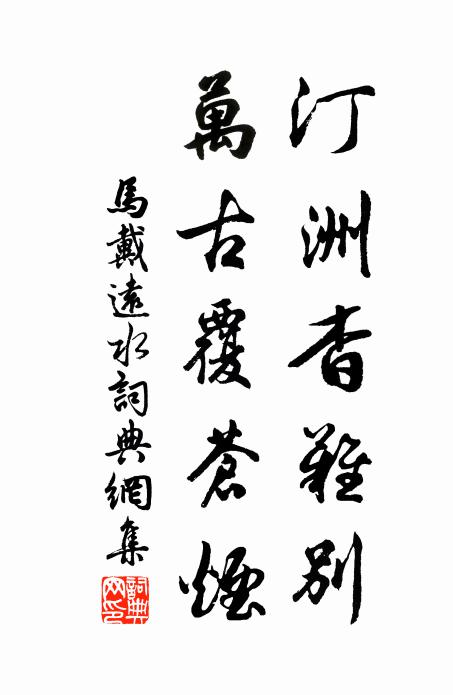 汀洲杳難別
萬古覆蒼煙
馬戴遠水詞典網集
詞典網印